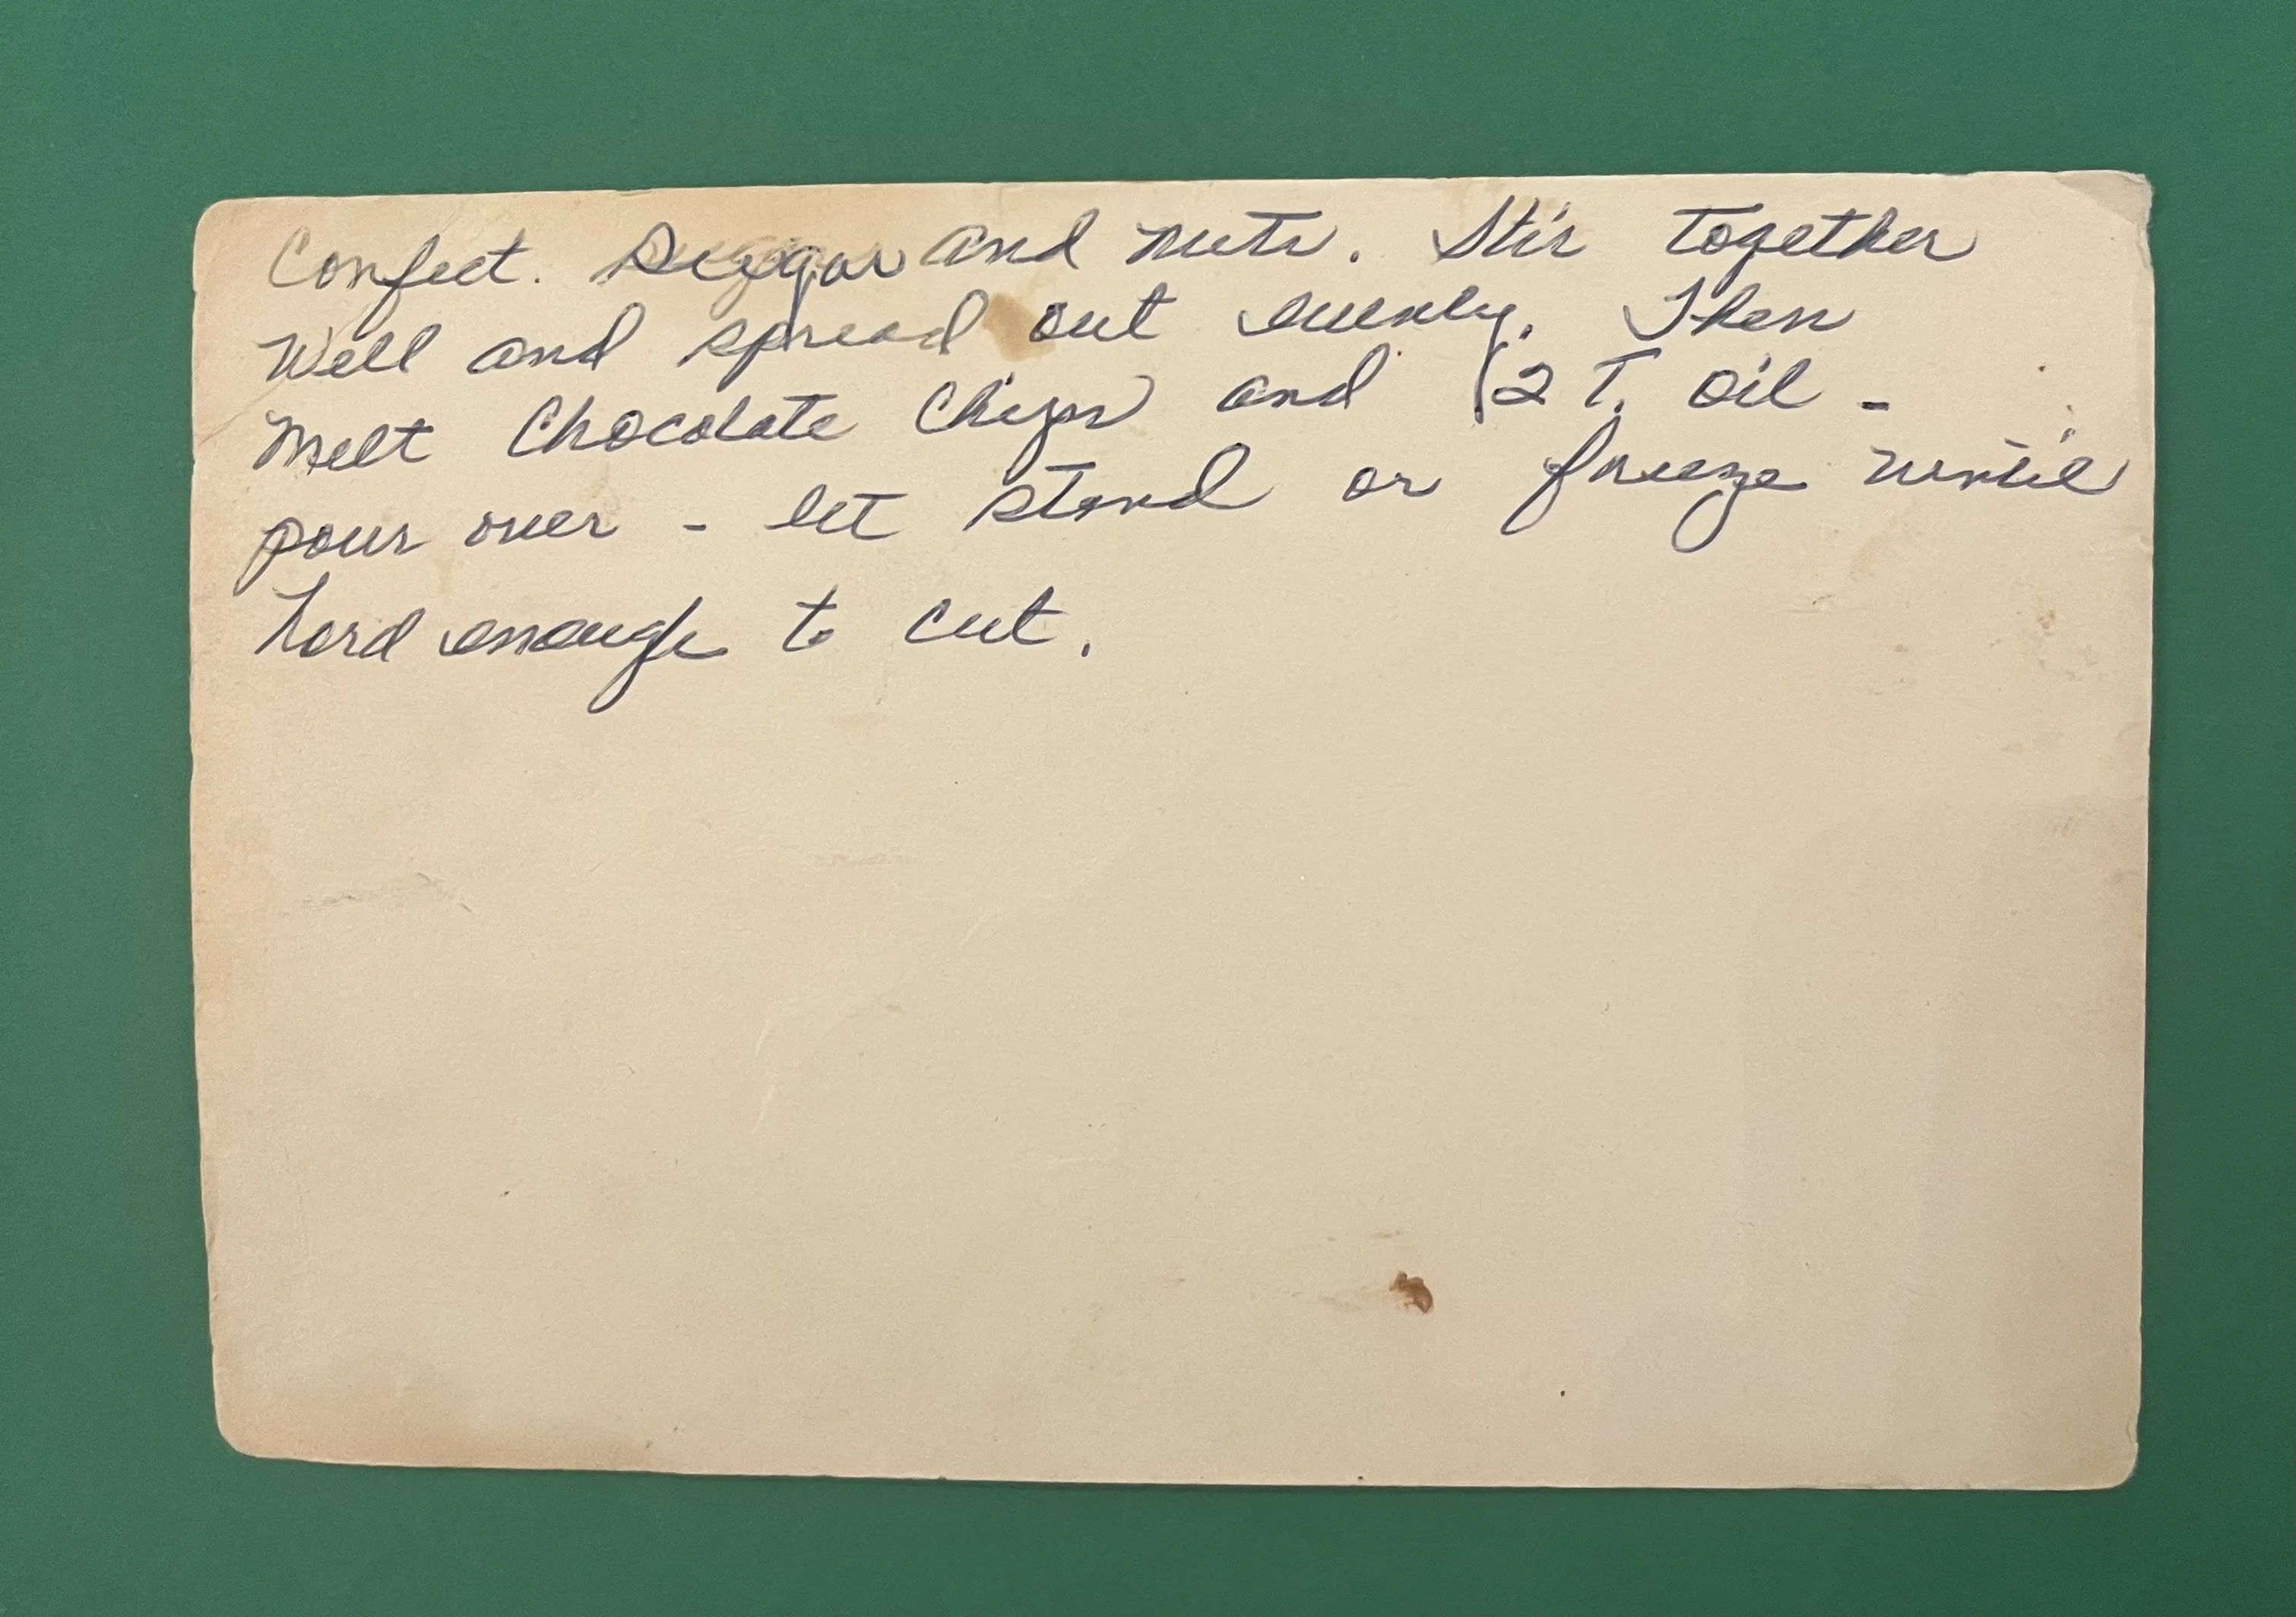 Confect. Suggar and nuts. Stir together
Well and spread out evenly. Then
Melt Chocolate Chips and (2 T. Oil -
pour over - let stand or freeze until
hard enough to cut.